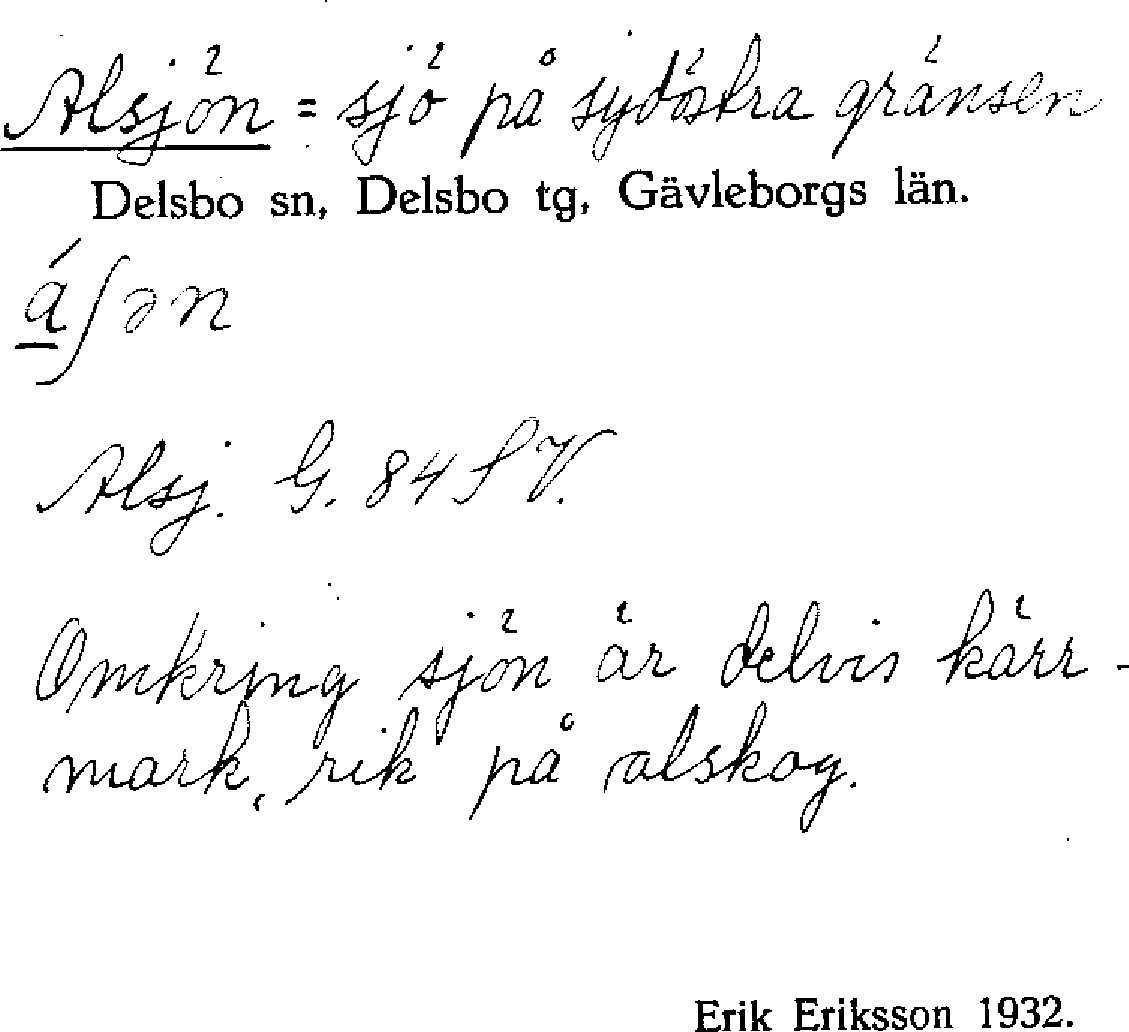 Alsjön = sjö på sydöstra gränsen
Delsbo sn, Delsbo tg, Gävleborgs län.
á̱ʃən
Alsj. G. 84 SV.
Omkring sjön är delvis kärr-
mark, rik på alskog.
Erik Eriksson 1932.